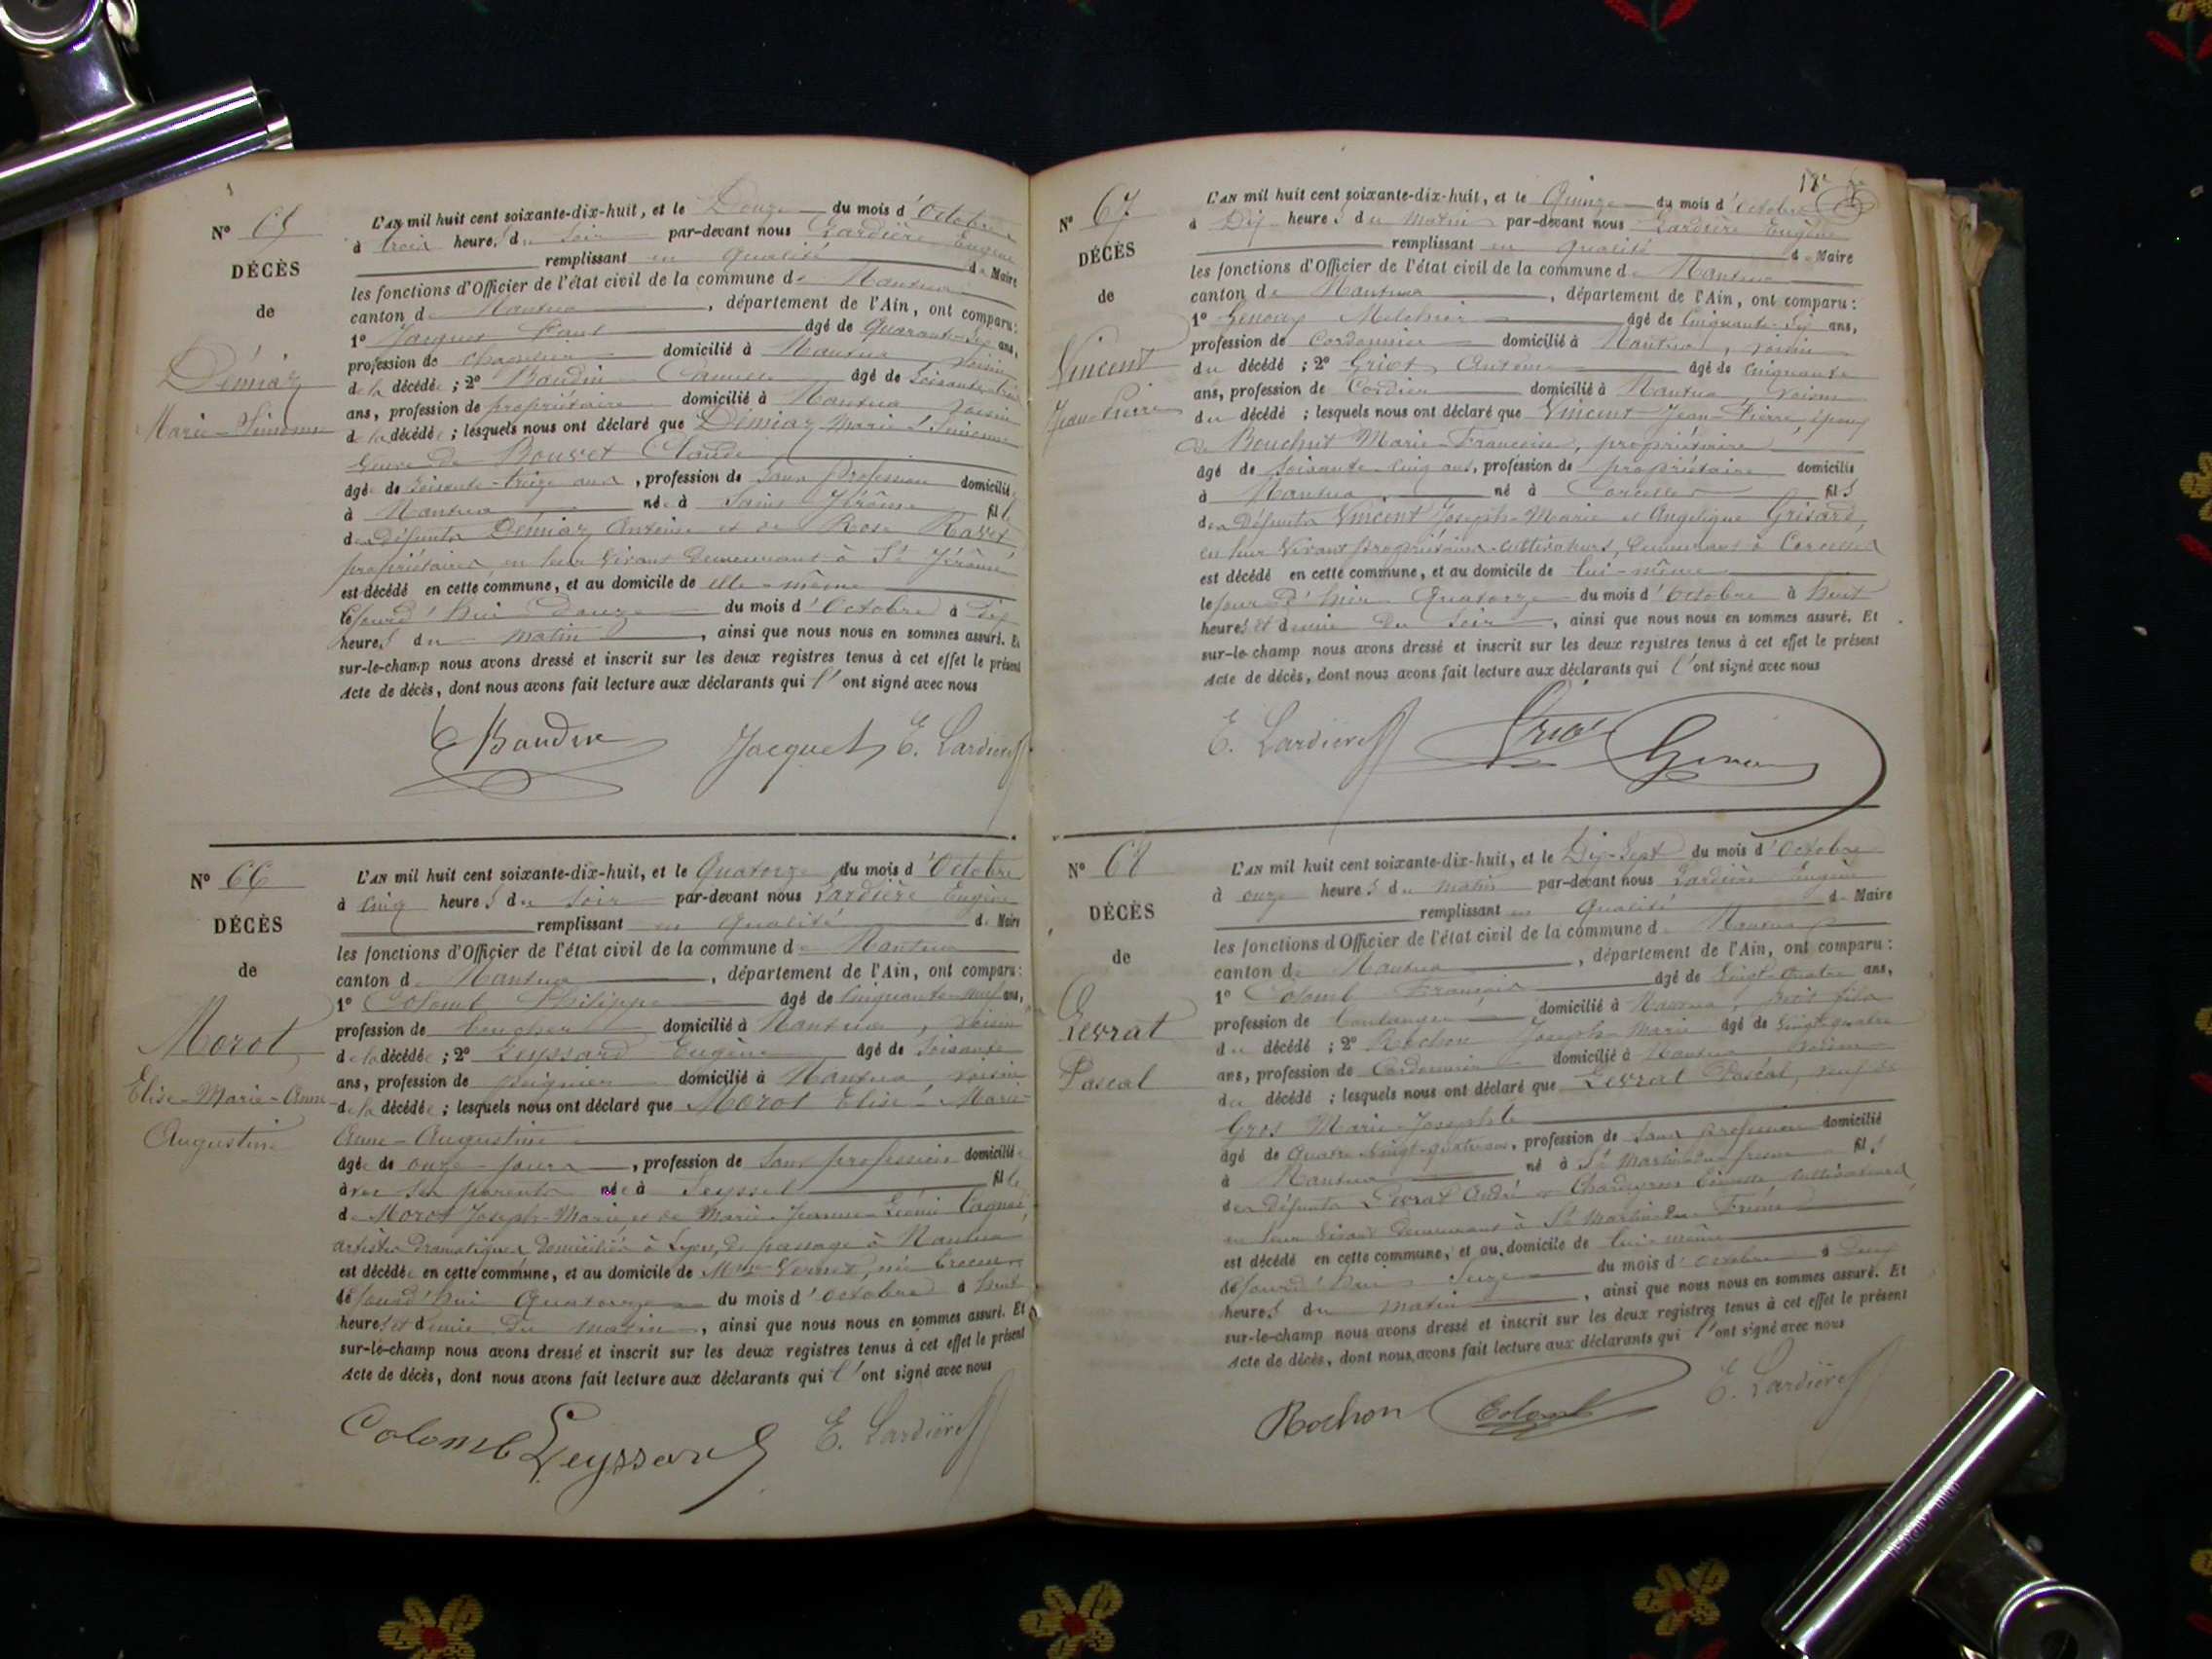 N° 65
DÉCÈS
de
Démiaz
Marie-Simonne
L'AN mil huit cent soixante-dix-huit, et le Douze du mois d'Octobre
à trois heures du soir par-devant nous Lardière Eugène
remplissant en qualité de Maire
les fonctions d'Officier de l'état civil de la commune de Nantua
canton de Nantua, département de l'Ain, ont comparu:
1° Jacquet Paul âgé de Quarante-six ans,
profession de domicilié à Nantua, voisin
de la décédée; 2° Baudin Camille âgé de soixante-trois
ans, profession de propriétaire domicilié à Nantua voisin
de la décédée; lesquels nous ont déclaré que Démiaz Marie-Simonne
veuve de Bouvet Claude
âgée de soixante-treize ans, profession de sans profession domiciliée
à Nantua née à Saint Jérôme fille
des défunts Démiaz Antoine et de Rose Ravet,
propriétaires en leur vivant demeurant à St Jérôme
est décédé en cette commune, et au domicile de elle-même
cejourd'hui douze du mois d'Octobre à dix
heures du matin, ainsi que nous nous en sommes assuré. Et
sur-le-champ nous avons dressé et inscrit sur les deux registres tenus à cet effet le présent
Acte de décès, dont nous avons fait lecture aux déclarants qui l'ont signé avec nous
C Baudin Jacquet E. Lardière
N° 66
DÉCÈS
de
Morot
Elise-Marie-Anne-
Augustine
L'AN mil huit cent soixante-dix-huit, et le Quatorze du mois d'Octobre
à cinq heures du soir par-devant nous Lardière Eugène
remplissant en qualité de Maire
les fonctions d'Officier de l'état civil de la commune de Nantua
canton de Nantua, département de l'Ain, ont comparu:
1° Colomb Philippe âgé de cinquante-neuf ans,
profession de boucher domicilié à Nantua, voisin
de la décédée; 2° Leyssard Eugène âgé de soixante
ans, profession de peignier domicilié à Nantua, voisin
de la décédée; lesquels nous ont déclaré que Morot Elise-Marie-
Anne-Augustine
âgée de onze jours, profession de sans profession domiciliée
avec ses parents née à Seyssel fille
de Morot Joseph-Marie et de Marie-Jeanne-Léonie
artistes dramatiques domiciliés à Lyon, de passage à Nantua
est décédée en cette commune, et au domicile de Mme Vernet, née
cejourd'hui Quatorze du mois d'Octobre à huit
heures et demie du matin, ainsi que nous nous en sommes assuré. Et
sur-le-champ nous avons dressé et inscrit sur les deux registres tenus à cet effet le présent
Acte de décès, dont nous avons fait lecture aux déclarants qui l'ont signé avec nous
Colomb Leyssard E. Lardière
N° 67
DÉCÈS
de
Vincent
Jean Pierre
L'AN mil huit cent soixante-dix-huit, et le Quinze du mois d'Octobre
à Dix heures du matin par-devant nous Lardière Eugène
remplissant en qualité de Maire
les fonctions d'Officier de l'état civil de la commune de Nantua
canton de Nantua, département de l'Ain, ont comparu:
1° Melchior âgé de cinquante-six ans,
profession de Cordonnier domicilié à Nantua, voisin
du décédé; 2° Griot Antoine âgé de cinquante
ans, profession de Cordier domicilié à Nantua, voisin
du décédé; lesquels nous ont déclaré que Vincent Jean-Pierre, époux
de Bouchut Marie-Françoise, propriétaire
âgé de soixante cinq ans, profession de propriétaire domicilié
à Nantua né à Corcelles fils
des défunts Vincent Joseph-Marie et Angélique Grisard,
en leur vivant propriétaires-cultivateurs, demeurant à Corcelles
est décédé en cette commune, et au domicile de lui-même
le jour d'hier Quatorze du mois d'Octobre à huit
heures et demie du soir, ainsi que nous nous en sommes assuré. Et
sur-le-champ nous avons dressé et inscrit sur les deux registres tenus à cet effet le présent
Acte de décès, dont nous avons fait lecture aux déclarants qui l'ont signé avec nous
E. Lardière Griot
N° 68
DÉCÈS
de
Levrat
Pascal
L'AN mil huit cent soixante-dix-huit, et le Dix-Sept du mois d'Octobre
à onze heures du matin par-devant nous Lardière Eugène
remplissant en qualité de Maire
les fonctions d'Officier de l'état civil de la commune de Nantua
canton de Nantua, département de l'Ain, ont comparu:
1° Colomb François âgé de vingt-quatre ans,
profession de boulanger domicilié à Nantua, petit fils
du décédé; 2° Rochon Joseph-Marie âgé de vingt-quatre
ans, profession de Cordonnier domicilié à Nantua voisin
du décédé; lesquels nous ont déclaré que Levrat Pascal, veuf de
Gros Marie-Josephte
âgé de Quatre-vingt-quatre ans, profession de sans profession domicilié
à Nantua né à St Martin-du-fresne fils
des défunts Levrat André et cultivateurs
en leur vivant demeurant à St Martin-du-Frêne
est décédé en cette commune, et au domicile de lui-même
cejourd'hui du mois d'Octobre à Deux
heures du matin, ainsi que nous nous en sommes assuré. Et
sur-le-champ nous avons dressé et inscrit sur les deux registres tenus à cet effet le présent
Acte de décès, dont nous avons fait lecture aux déclarants qui l'ont signé avec nous
Rochon Colomb E. Lardière